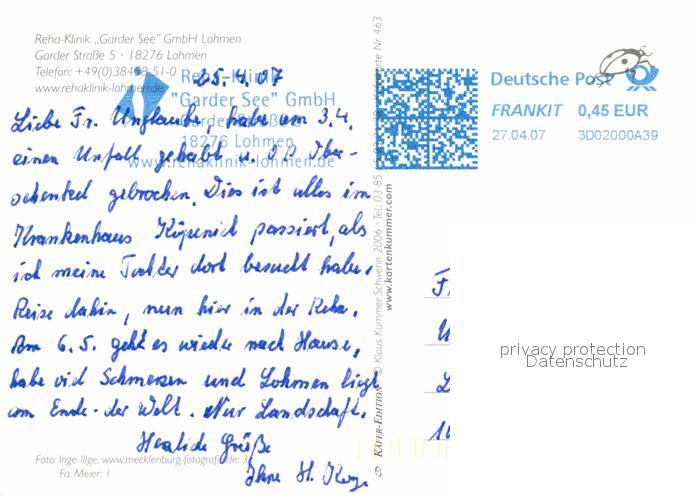 Reha-Klinik „Garder See" GmbH Lohmen
Garder Straße 5 · 18276 Lohmen
Telefon: +49(0)38458-51-0
www.rehaklinik-lohmen.de
Reha-Klinik
"Garder See" GmbH
Garder Straße
18276 Lohmen
www.rehaklinik-lohmen.de
25.4.07
Liebe Fr. Unglaube, habe am 3.4.
einen Unfall gehabt u. Ober-
schenkel gebrochen. Dies ist alles im
Krankenhaus Köpenick passiert, als
ich meine Tochter dort besucht habe.
Reise dahin, nun hier in der Reha.
Am 6.5. geht es wieder nach Hause,
habe viel Schmerzen und Lohmen liegt
am Ende der Welt. Nur Landschaft.
Herzliche Grüße
Ihre H.
Foto: Inge Illge, www.mecklenburg-fotografie.de
Fa. Meier: 1
KÄFER-EDITION © Klaus Kummer Schwerin 2006 · Tel. 03 85
www.kartenkummer.com
Nr. 463
Deutsche Post
FRANKIT 0,45 EUR
27.04.07 3D02000A39
privacy protection
Datenschutz